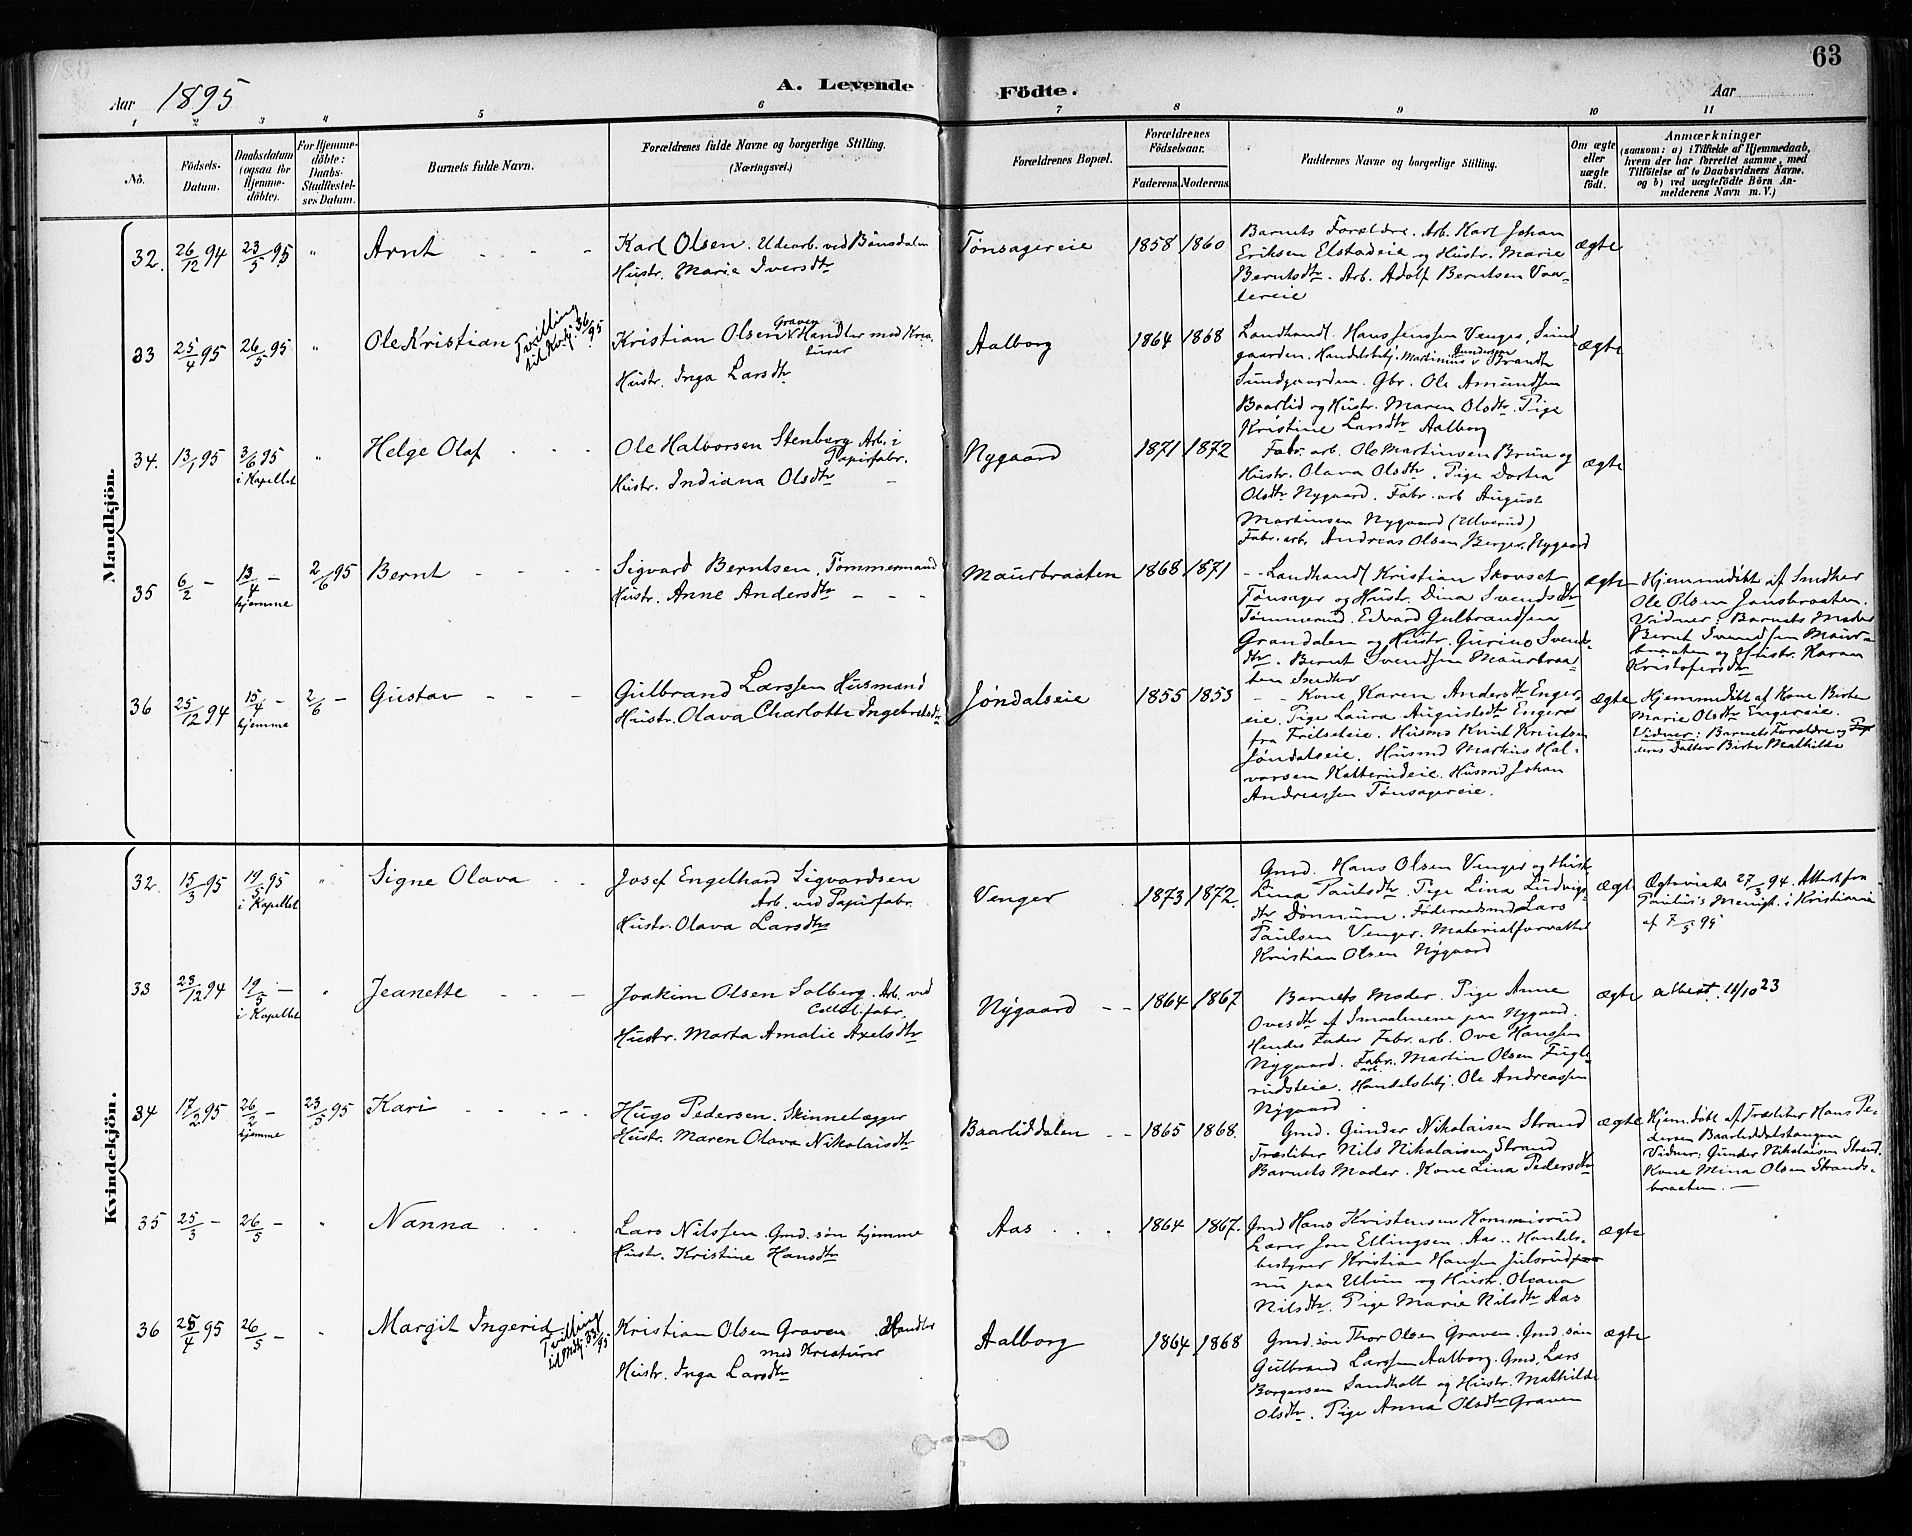 63
Aar 1895
A. Levende
Födte.
Aar
1 2 3 4 5 6 7 8 9 10 11
No.
Födsels-
Datum.
Daabsdatum
(ogsaa for
Hjemme-
döbte).
For Hjemme-
döbte:
Daabs-
Stadfæstel-
ses Datum.
Barnets fulde Navn.
Forældrenes fulde Navne og borgerlige Stilling.
(Næringsvei.)
Forældrenes Bopæl.
Forældrenes
Födselsaar.
Faderens. Moderens.
Faddernes Navne og borgerlige Stilling.
Om ægte
eller
uægte
födt.
Anmærkninger
(saasom: a) i Tilfælde af Hjemmedaab,
hvem der har forrettet samme, med
Tilföielse af to Daabsvidners Navne,
og b) ved uægtefödte Börn An-
melderens Navn m. V.)
Mandkjön.
32. 26/12 94 23/5 95 " Arnt
Karl Olsen. Udearb. ved Bønsdalen
Hustr. Marie Iversdtr
Tønsagereie 1858 1860
Barnets Forældre. Arb. Karl Johan
Eriksen Elstadeie og Hustr. Marie
Berntsdtr. Arb. Adolf Berntsen Vaa-
lereie
ægte
33 25/4 95 26/5 95 " Ole Kristian
Tvilling
til Kvkj. 36/95
Kristian Olsen Graven Handler med Krea-
turer
Hustr. Inga Larsdtr
Aalborg 1864 1868
Landhandl. Hans Jenssen Venger, Sund-
gaarden. Handelsbetj. Martinius Gundersen Strande
Sundgaarden. Gbr. Ole Amundsen
Baarlid og Hustr. Maren Olsdtr. Pige
Kristine Larsdtr Aalborg
ægte
34. 13/1 95 3/6 95
i Kapellet
" Helge Olaf
Ole Halvorsen Stenberg Arb. i
Papirfabr.
Hustr. Indiana Olsdtr
Nygaard 1871 1872
Fabr. arb. Ole Martinsen Brun og
Hustr. Olava Olsdtr. Pige Dortea
Olsdtr Nygaard. Fabr. arb August
Martinsen Nygaard (Ulverud)
Fabr. arb. Andreas Olsen Berger, Nygaard
ægte
35 6/2 - 13/4 -
hjemme
2/6 95 Bernt
Sigvard Berntsen, Tømmermand
Hustr. Anne Andersdtr
Maurbraaten 1868 1871
Landhandl Kristian Skovset
Tønsager og Hustr. Dina Svendsdtr
Tømmerud. Edvard Gulbrandsen
Grandalen og Hustr. Gurine Svends-
dtr. Bernt Svendsen Maurbraa-
ten Snedker
ægte
Hjemmedøbt af Snedker
Ole Olsen Jonsbraaten.
Vidner: Barnets Moder
Bernt Svendsen Maur-
braaten og Hustr. Karen
Kristofersdtr
36 25/12 94 15/4 -
hjemme
2/6 - Gustav
Gulbrand Larssen Husmand
Hustr. Olava Charlotte Ingebretsdtr
Jøndalseie 1855 1853
Kone Karen Andersdtr Enger-
eie. Pige Laura Augustsdtr Engers
fra Frilseteie. Husmd Knut Knutsen
Jøndalseie. Husmd Markus Hal-
vorsen Katterudeie. Husmd Johan
Andreassen Tønsagereie.
ægte
Hjemmedøbt af Kone Birte
Marie Olsdtr Engereie.
Vidner: Barnets Forældre og
deres Datter Birte Mathilde
Kvindekjön.
32. 15/3 95 19/5 95
i Kapellet
" Signe Olava
Josef Engelhard Sigvardsen
Arb. ved Papirfabr.
Hustr. Olava Larsdtr
Venger 1873 1872.
Gmd. Hans Olsen Venger og Hustr
Lina Paulsdtr. Pige Lina Ludvigs-
dtr Dønnum. Føderaadsmd Lars
Paulsen Venger. Materialforvalter
Kristian Olsen Nygaard
ægte
Ægteviede 27/3 94. Attest fra
Paulus's Menigh. i Kristiania
af 7/5 95
33 23/12 94 19/5 -
i Kapellet
" Jeanette
Joakim Olsen Solberg. Arb. ved
Cellsl. fabr.
Hustr. Marta Amalie Axelsdtr
Nygaard 1864 1867
Barnets Moder. Pige Anne
Ovesdtr af Smaalenene paa Nygaard.
Hendes Fader Fabr. arb. Ove Hanssen
Nygaard. Fabr. arb. Martin Olsen Fugle-
rudsteie. Handelsbetj. Ole Andreassen
Nygaard
ægte
attest. 11/10 23
34 17/2 95 26/2 -
hjemme
23/5 95 Kari
Hugo Pedersen. Skinnelægger
Hustr. Maren Olava Nikolaisdtr
Baarliddalen 1865 1868.
Gmd. Gunder Nikolaisen Strand
Træsliber Nils Nikolaisen Strand
Barnets Moder. Kone Lina Pedersdtr
ægte
Hjem. døbt af Træsliber Hans Pe-
dersen Baarliddalstangen
Vidner: Gunder Nikolaisen Strand.
Kone Mina Olsen Strands-
braaten.
35 25/3 - 26/5 - " Nanna
Lars Nilssen. Gmd. søn hjemme
Hustr. Kristine Hansdtr
Aas 1864 1867.
Gmd Hans Kristensen Kommisrud
Lærer Jon Ellingsen. Aas. Handels-
bestyrer Kristian Hansen Julsrud
nu paa Ulvin og Hustr. Oleana
Nilsdtr. Pige Marie Nilsdtr Aas
ægte
36 25/4 95 26/5 - " Margit Ingerid
Tvilling
til Mdkj. 33/95
Kristian Olsen Graven Handler
med Kreaturer
Hustr. Inga Larsdtr
Aalborg 1864 1868
Gmd. søn Thor Olsen Graven. Gmd. søn
Gulbrand Larssen Aalborg. Gmd. Lars
Borgersen Sandholt og Hustr. Mathilde
Olsdtr. Pige Anna Olsdtr Graven
ægte